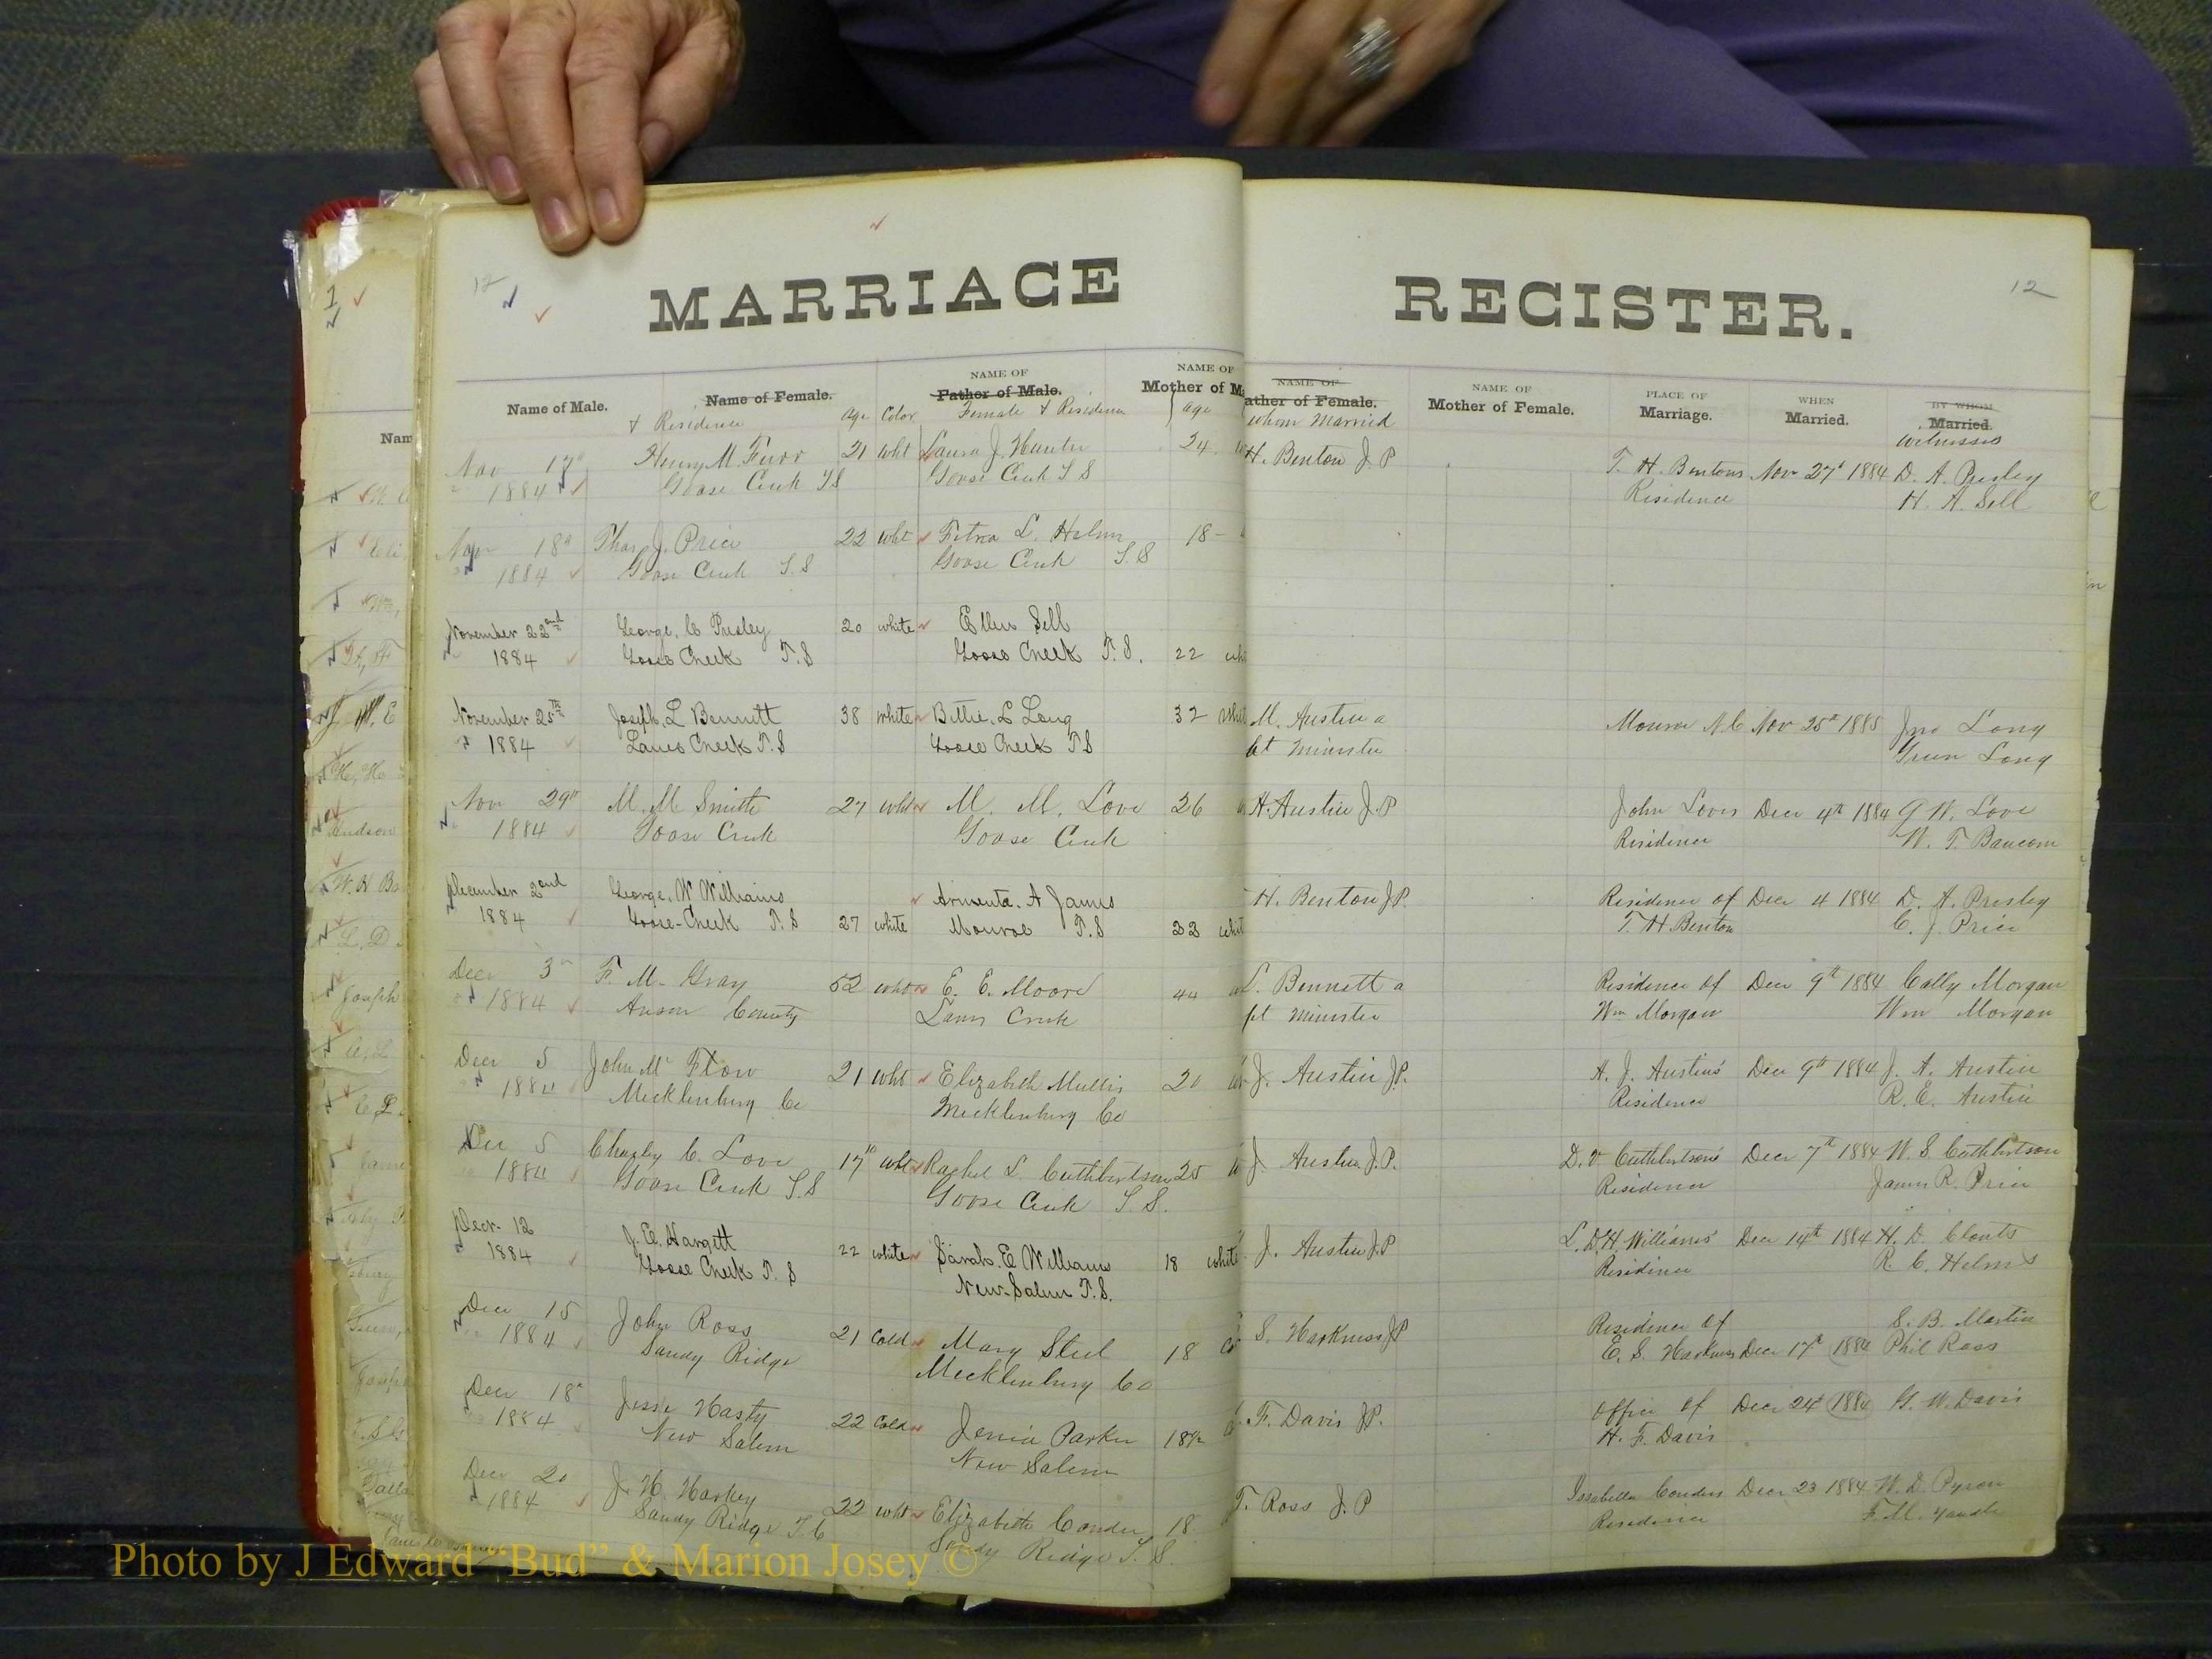 MARRIAGE REGISTER.
12 12
Name of Male. Name of Female. NAME OF Father of Male. NAME OF Mother of M
& Residence Age Color Female & Residence Age
NAME OF ather of Female. NAME OF Mother of Female. PLACE OF Marriage. WHEN Married. BY WHOM Married.
whom Married Witnesses
Nov 17 Henry M. Furr 21 wht Laura J. Hunter 24 H. Benton J P T. H. Bentons Nov 27 1884 D. A. Presley
1884 Goose Creek T S Goose Creek T S Residence H. A. Sell
Nov 18 Thos J. Price 22 wht L. Helms 18
1884 Goose Creek T. S Goose Creek T. S
November 22nd George. C Presley 20 white Ellen Sell
1884 Goose Creek T. S Goose Creek T. S. 22 whi
November 25th Joseph. L Bennett 38 white Bettie. L Long 32 whit M. Austin a Monroe N. C Nov 25th 1885 Jno Long
1884 Lanes Creek T. S Goose Creek T S Bt Minister Green Long
Nov 29th M. M. Smith 27 wht M. M. Love 26 H. Austin J. P John Loves Dec 4th 1884 G. W. Love
1884 Goose Creek Goose Creek Residence W. T. Baucom
December 2nd George. W Williams Armenta. A James H. Benton J.P. Residence of Dec 4 1884 D. A. Presley
1884 Goose-Creek T. S 27 white Monroe T. S 23 whit T. H. Benton C. J. Price
Dec 3 F. M. Gray 52 white E. E. Moore 44 L. Bennett a Residence of Dec 9th 1884 Cally Morgan
1884 Anson County Lanes Creek pt minister Wm Morgan Wm Morgan
Dec 5 John M Flow 21 wht Elizabeth Mullis 20 J. Austin J.P. A. J. Austins' Dec 9th 1884 J. A. Austin
1884 Mecklenburg Co Mecklenburg Co Residence R. E. Austin
Dec 5 Charley C. Love 17 wht Rachel L. Cuthbertson 25 J. Austin J.P. D. V. Cuthbertsons' Dec 7th 1884 W. S. Cuthbertson
1884 Goose Creek T. S Goose Creek T. S. Residence James R. Price
Decr. 12 J. E. Hargett 22 white Sarah. E Williams 18 white J. Austin J.P L. D. H. Williams' Dec 14th 1884 H. D. Clonts
1884 Goose Creek T. S New-Salem T.S. Residence R. C. Helms
Dec 15 John Ross 21 Cold Mary Steel 18 S. Harkness JP Residence of S. B. Martin
1884 Sandy Ridge Mecklenburg Co E. S. Harkness Dec 17th 1884 Phil Ross
Dec 18 Jesse Hasty 22 Cold Jennie Parker 18½ F. Davis J.P. Office of Dec 24 1884 G. W. Davis
1884 New Salem New Salem H. F. Davis
Dec 20 J. H. Harkey 22 wht Elizabeth Conder 18 T. Ross J. P Issabella Conders Dec 23 1884 W. D. Pyron
1884 Sandy Ridge T S Sandy Ridge T. S. Residence F. M. Yandle
Photo by J Edward "Bud" & Marion Josey ©